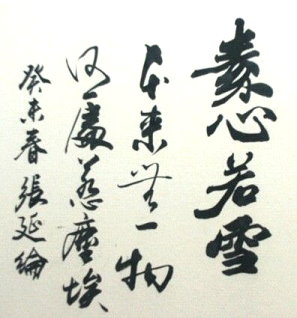 素心若雪
本来无一物
何處惹塵埃
癸未春張延綸